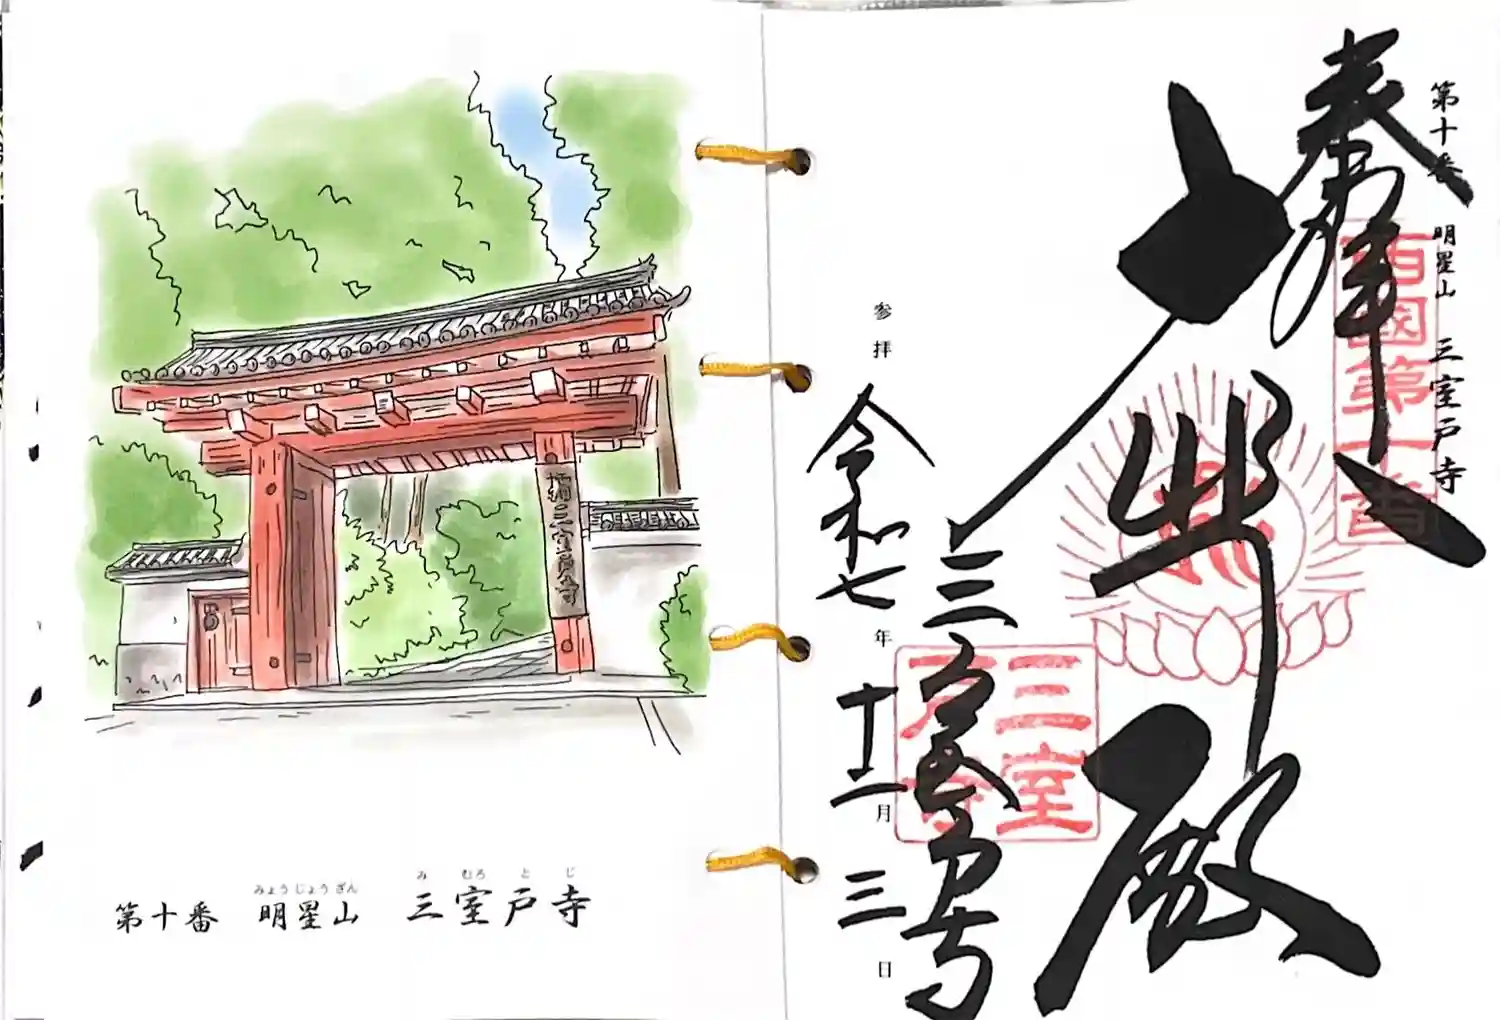 みょうじょうざん み むろ と じ
第十番 明星山 三室戸寺
第十番 明星山 三室戸寺
奉拝
西國第十番
大悲殿
三室戸寺
三室戸寺
参拝 令和七年十二月三日